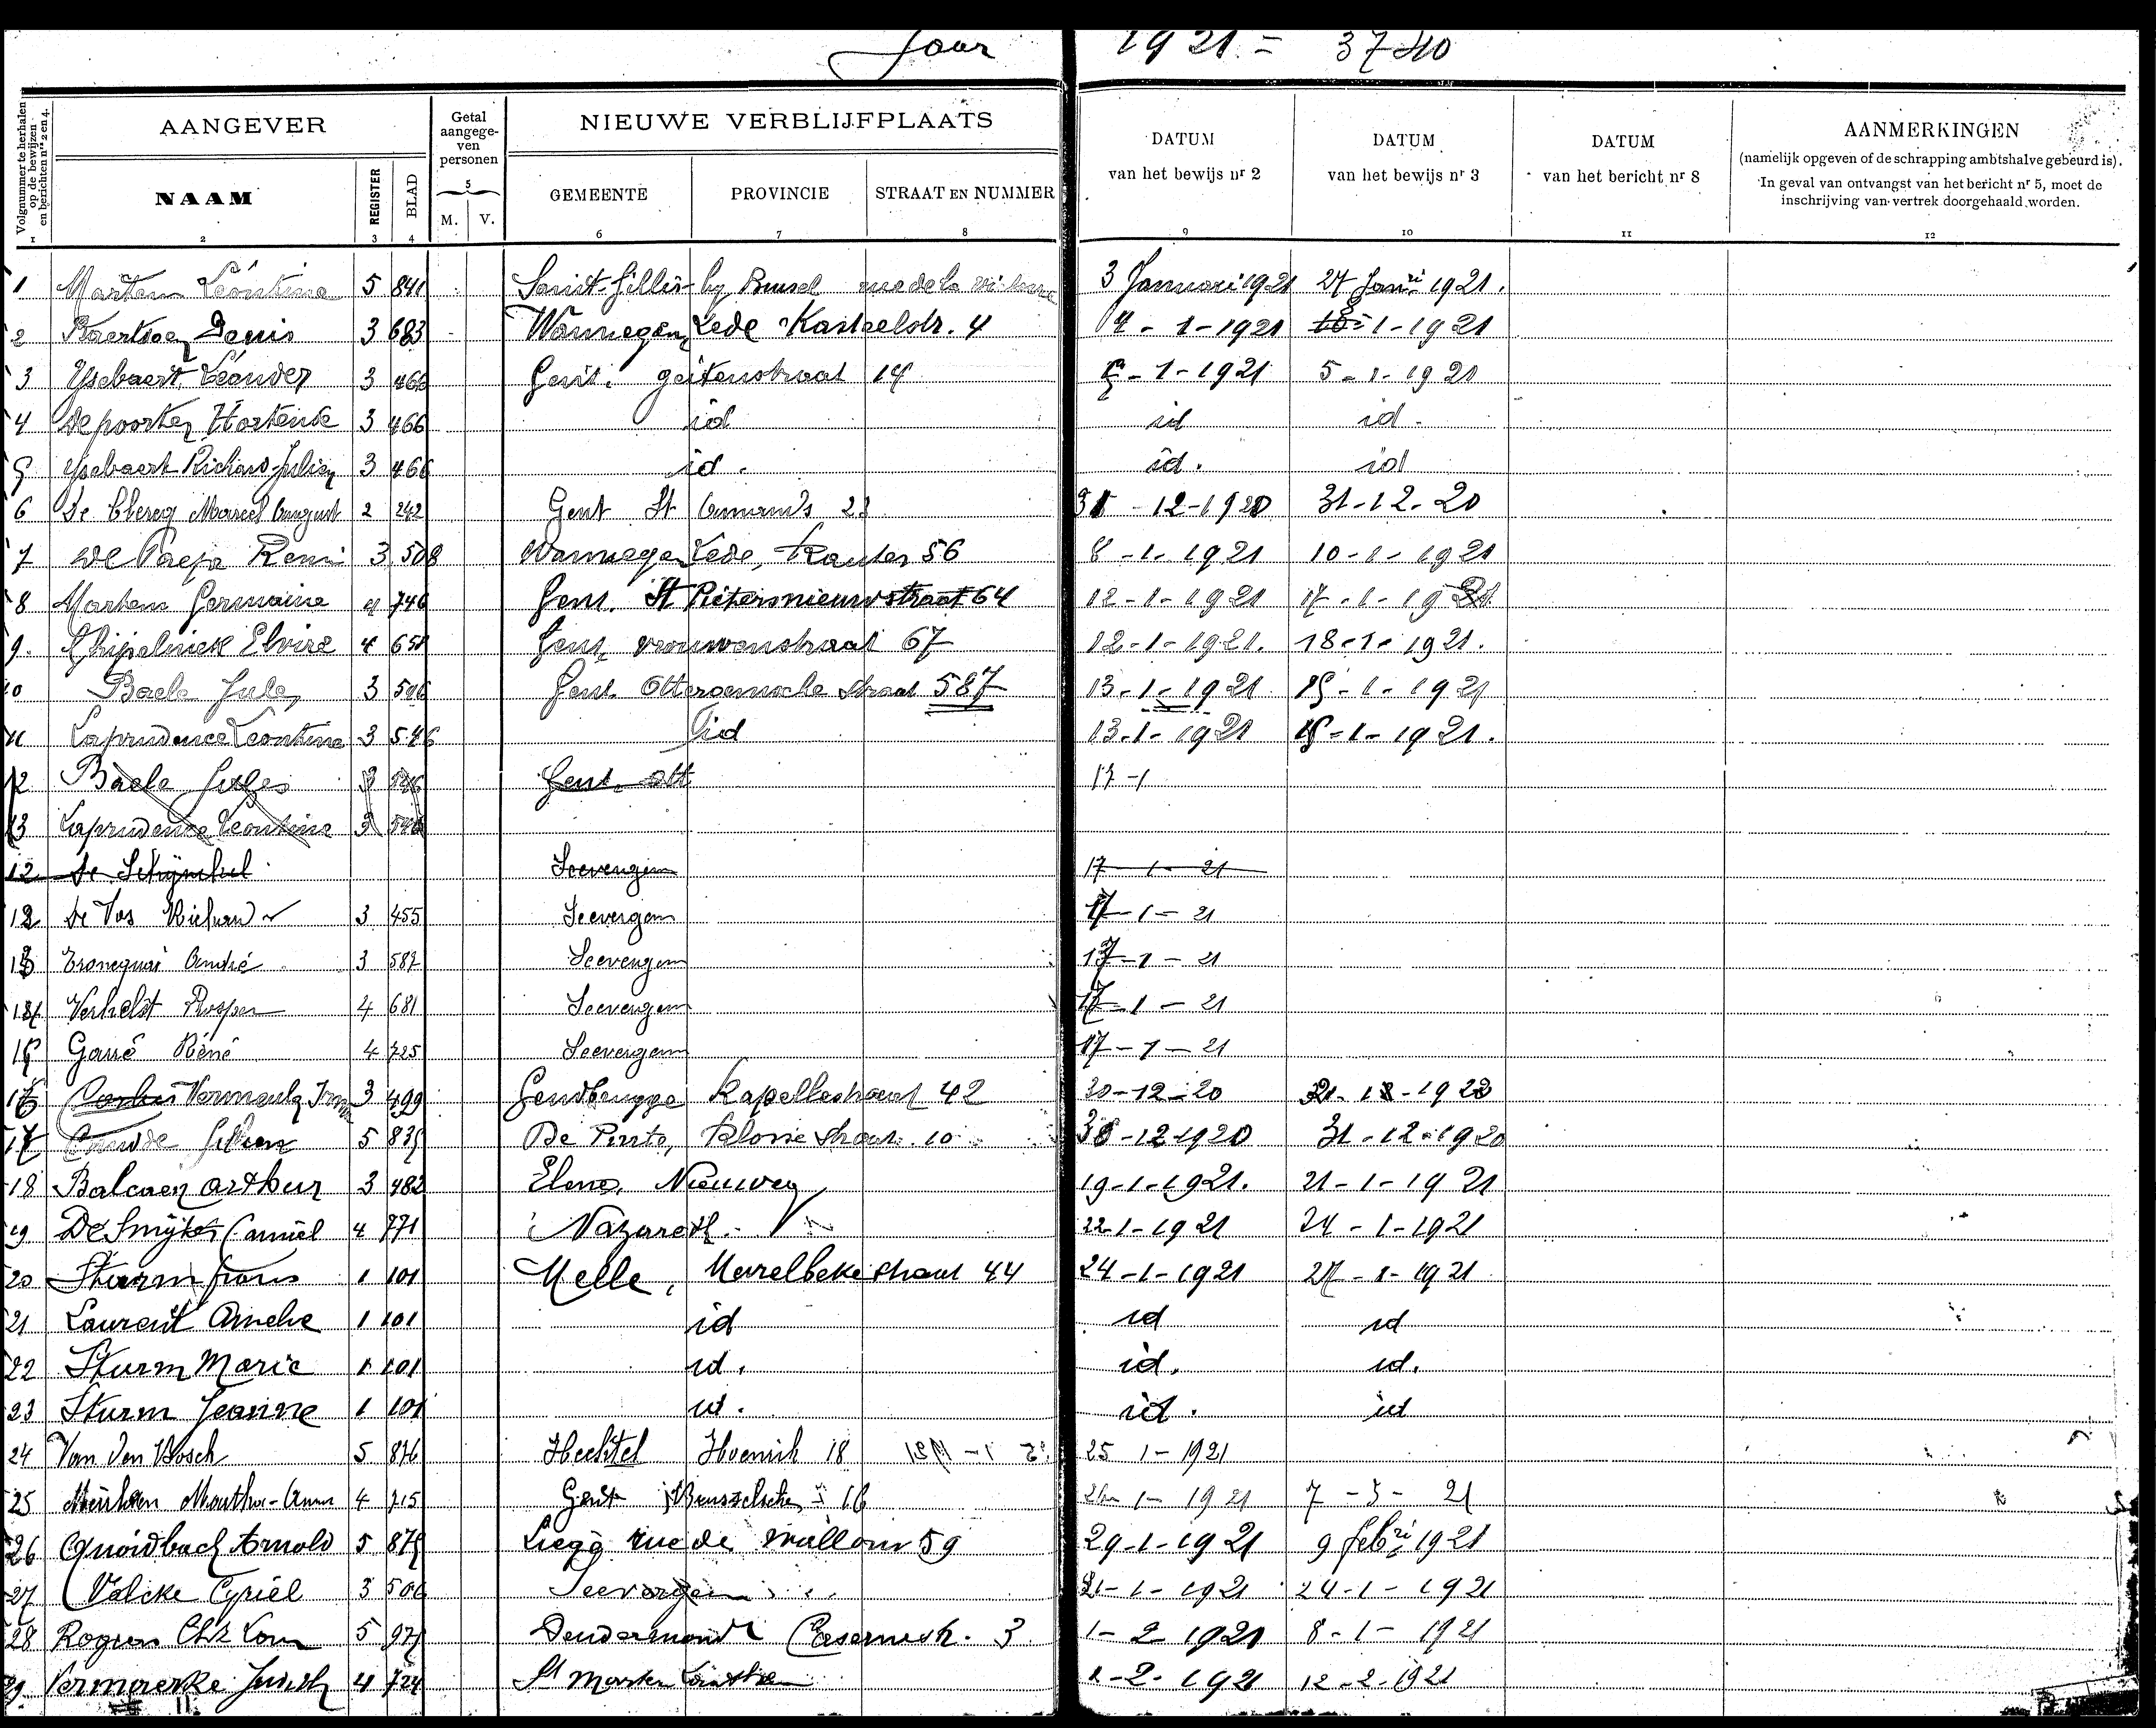 Jaar 1921 = 3740
Volgnummer te herhalen op de bewijzen en berichten nrs 2 en 4.
AANGEVER
Getal aangege-ven personen
NIEUWE VERBLIJFPLAATS
DATUM van het bewijs nr 2
DATUM van het bewijs nr 3
DATUM van het bericht nr 8
AANMERKINGEN
(namelijk opgeven of de schrapping ambtshalve gebeurd is).
In geval van ontvangst van het bericht nr 5, moet de inschrijving van vertrek doorgehaald worden.
NAAM REGISTER BLAD 5 M. V. GEMEENTE PROVINCIE STRAAT EN NUMMER
1 2 3 4 6 7 8 9 10 11 12
1 Martens Léontine 5 841 Saint-Gillis- by Brussel rue de la victoire 3 Januari 1921 27 Janri 1921.
2 Baertsoen Denis 3 683 Wannegem Lede Kasteelstr. 4 4-1-1921 8-1-1921
3 Ysebaert Léander 3 466 Gent. geitenstraat 14 5-1-1921 5-1-1921
4 Depoorter Hortense 3 466 id id id.
5 Ysebaert Richard-Julien 3 466 id. id. id
6 De Clercq Marcel August 2 242 Gent St Amand's 23 31-12-1920 31-12-20
7 De Paepe Remi 3 508 Wannegem Lede, Kauter 56 8-1-1921 10-1-1921
8 Martens Germaine 4 746 Gent. St Pietersnieuwstraat 64 12-1-1921 17-1-1921
9. Elvire 4 Gent, vrouwenstraat 67 12-1-1921. 18-1-1921.
10 Baele Jules 3 546 Gent Ottergemsche straat 587 13-1-1921 15-1-1921
11 Laprudence Leontine 3 546 id 13-1-1921 15-1-1921.
12 Baele Jules 3 546 Gent. ott 13-1
13 Laprudence Leontine 3 546
12 De Schijnkel Seevergem 17-1-21
12 De Vos Richard 3 455 Seevergem 17-1-21
13 André 3 587 Seevergem 17-1-21
14 Verhelst Prosper 4 681 Seevergem 17-1-21
15 Garré Réné 4 725 Seevergem 17-1-21
16 Vermeulen Irma 3 499 Gendbrugge Kapellestraat 42 30-12-20
17 5 De Pinte, straat. 10 30-12-1920 31-12-1920
18 Balcaen Arthur 3 482 Elene, Nieuweg 19-1-1921. 21-1-1921
19 De Smijter Camiel 4 771 Nazareth. 22-1-1921 24-1-1921
20 Sturm frans 1 101 Melle, Merelbekestraat 44 24-1-1921 27-1-1921
21 Laurent Amelie 1 101 id id id
22 Sturm Marie 1 101 id. id. id.
23 Sturm Jeanne 1 101 id. id. id
24 Van den Bosch 5 876 Hechtel 18 25 1-1921
25 Martha-Anna 4 715 Gent Brusselsche 16 1-1921 7-3-21
26 Quoidbach Arnold 5 875 Liege rue de wallons 59 29-1-1921 9 febri 1921
27 Valcke Cyriel 3 506 Seevergem 21-1-1921 24-1-1921
28 Rogiers 5 Dendermonde Casernestr. 3 1-2-1921 8-1-1921
29. Vermaercke Judith 4 724 St Marten 1-2-1921 12-2-1921